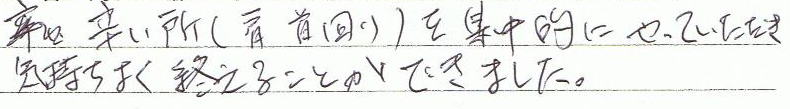 辛い所(肩首回り)を集中的にやっていただき
気持ちよく終えることができました。